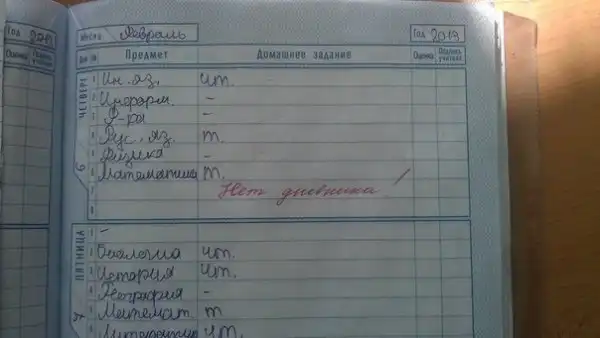 Год 2019
Оценка Подпись учителя
Месяц Февраль
Год 2019
Предмет Домашнее задание Оценка Подпись учителя
ЧЕТВЕРГ
6
1 Ин. яз. чт.
2 Информ. –
3 Ф-ра –
4 Рус. яз. т.
5 Физика –
6 Математика т.
7 Нет дневника!
8
ПЯТНИЦА
7
1 –
2 Биология чт.
3 История чт.
4 География –
5 Математ. т
6 Литература чт.